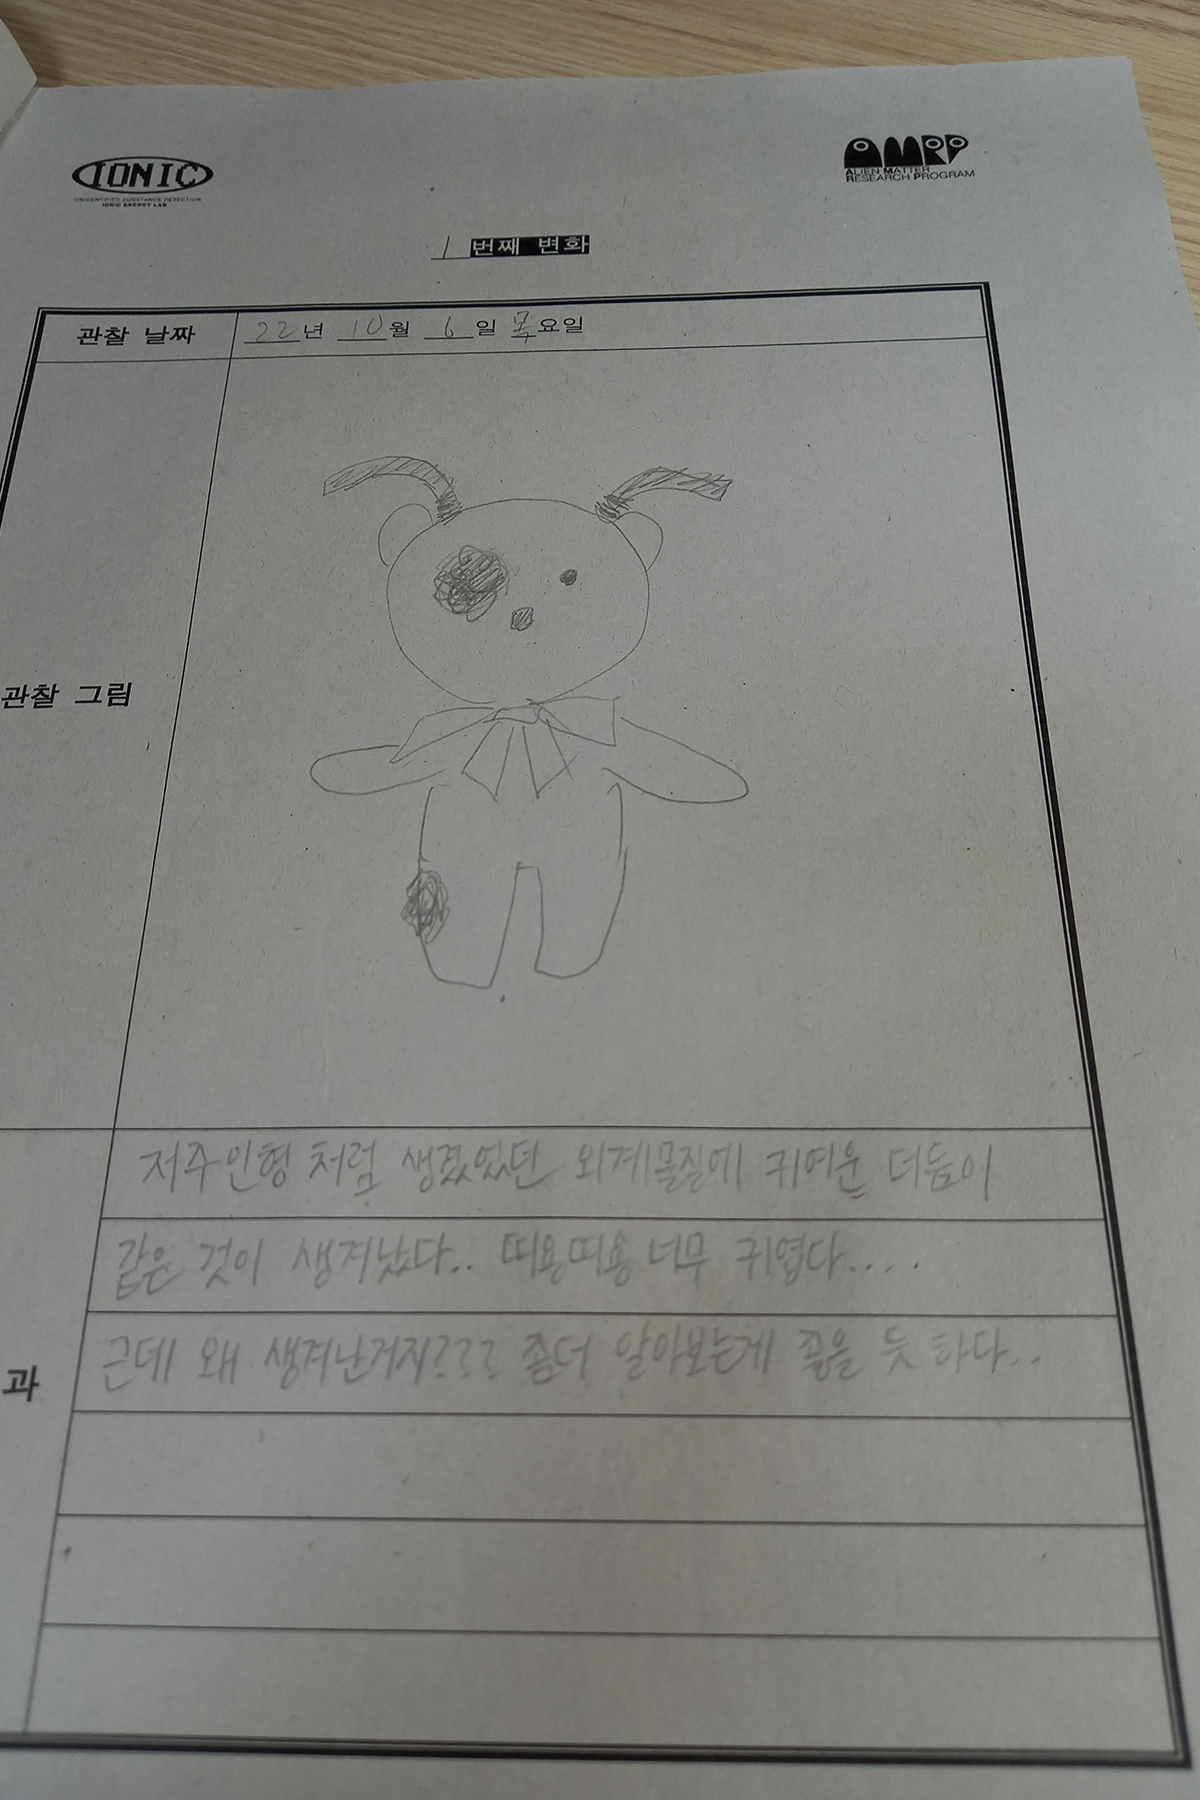 IONIC
UNIDENTIFIED SUBSTANCE DETECTION
IONIC ENERGY LAB
AMRP
ALIEN MATTER
RESEARCH PROGRAM
1 번째 변화
관찰 날짜 22년 10월 6일 목요일
관찰 그림
저주인형 처럼 생겼었던 외계물질에 귀여운 더듬이
같은 것이 생겨났다.. 띠용띠용 너무 귀엽다....
과
근데 왜 생겨난거지??? 좀더 알아보는게 좋을 듯 하다..